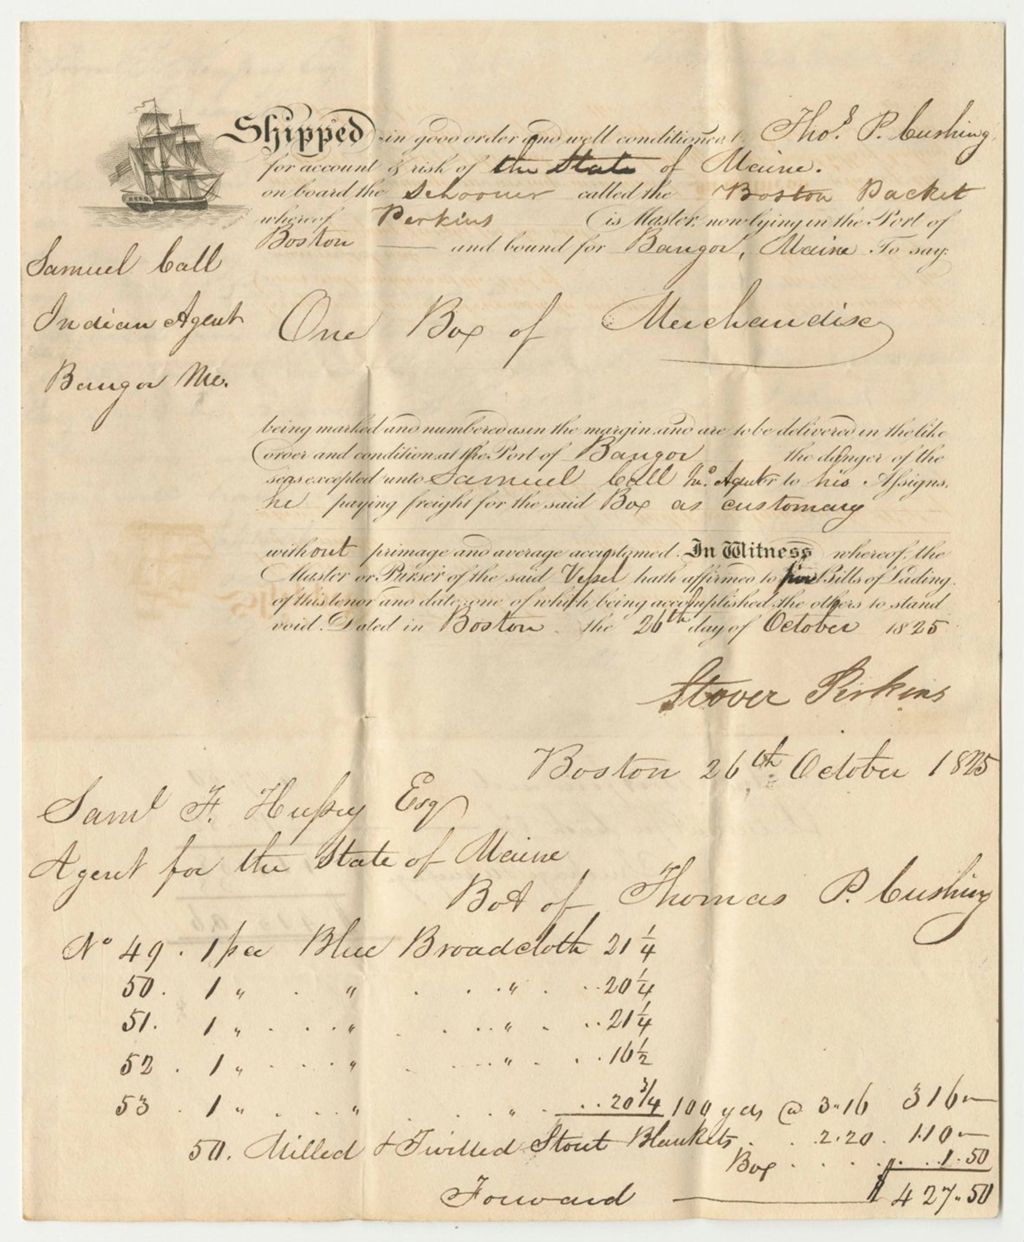 Shipped in good order and well conditioned by Thos. P. Cushing
for account & risk of the State of Maine.
on board the Schooner called the Boston Packet
whereof Perkins is Master, now lying in the Port of
Boston and bound for Bangor, Maine. To say:
Samuel Call
Indian Agent
Bangor Me.
One Box of Merchandise
being marked and numbered as in the margin and are to be delivered in the like
order and condition at the Port of Bangor the danger of the
seas excepted unto Samuel Call Agent or to his Assigns,
he paying freight for the said Box as customary
without primage and average accustomed. In Witness whereof, the
Master or Purser of the said Vessel hath affirmed to five Bills of Lading,
of this tenor and date; one of which being accomplished, the others to stand
void. Dated in Boston the 26th day of October 1825
Stover Perkins
Boston 26th October 1825
Saml F. Hussey Esq
Agent for the State of Maine
Bot of Thomas P. Cushing
No 49 . 1 pce Blue Broadcloth 21 1/4
50. 1 " . " . . . " . . . 20 1/4
51. 1 " . . . " . . . " . . . 21 1/4
52 . 1 " . . . " . . . " . . . 16 1/2
53 . 1 " . . . " . . . " . . . 20 3/4 100 yds @ 3.16 316 —
50. Milled & Twilled Stout Blankets . . 2.20 . 110 —
Box . . . . . . 1.50
Forward $ 427.50